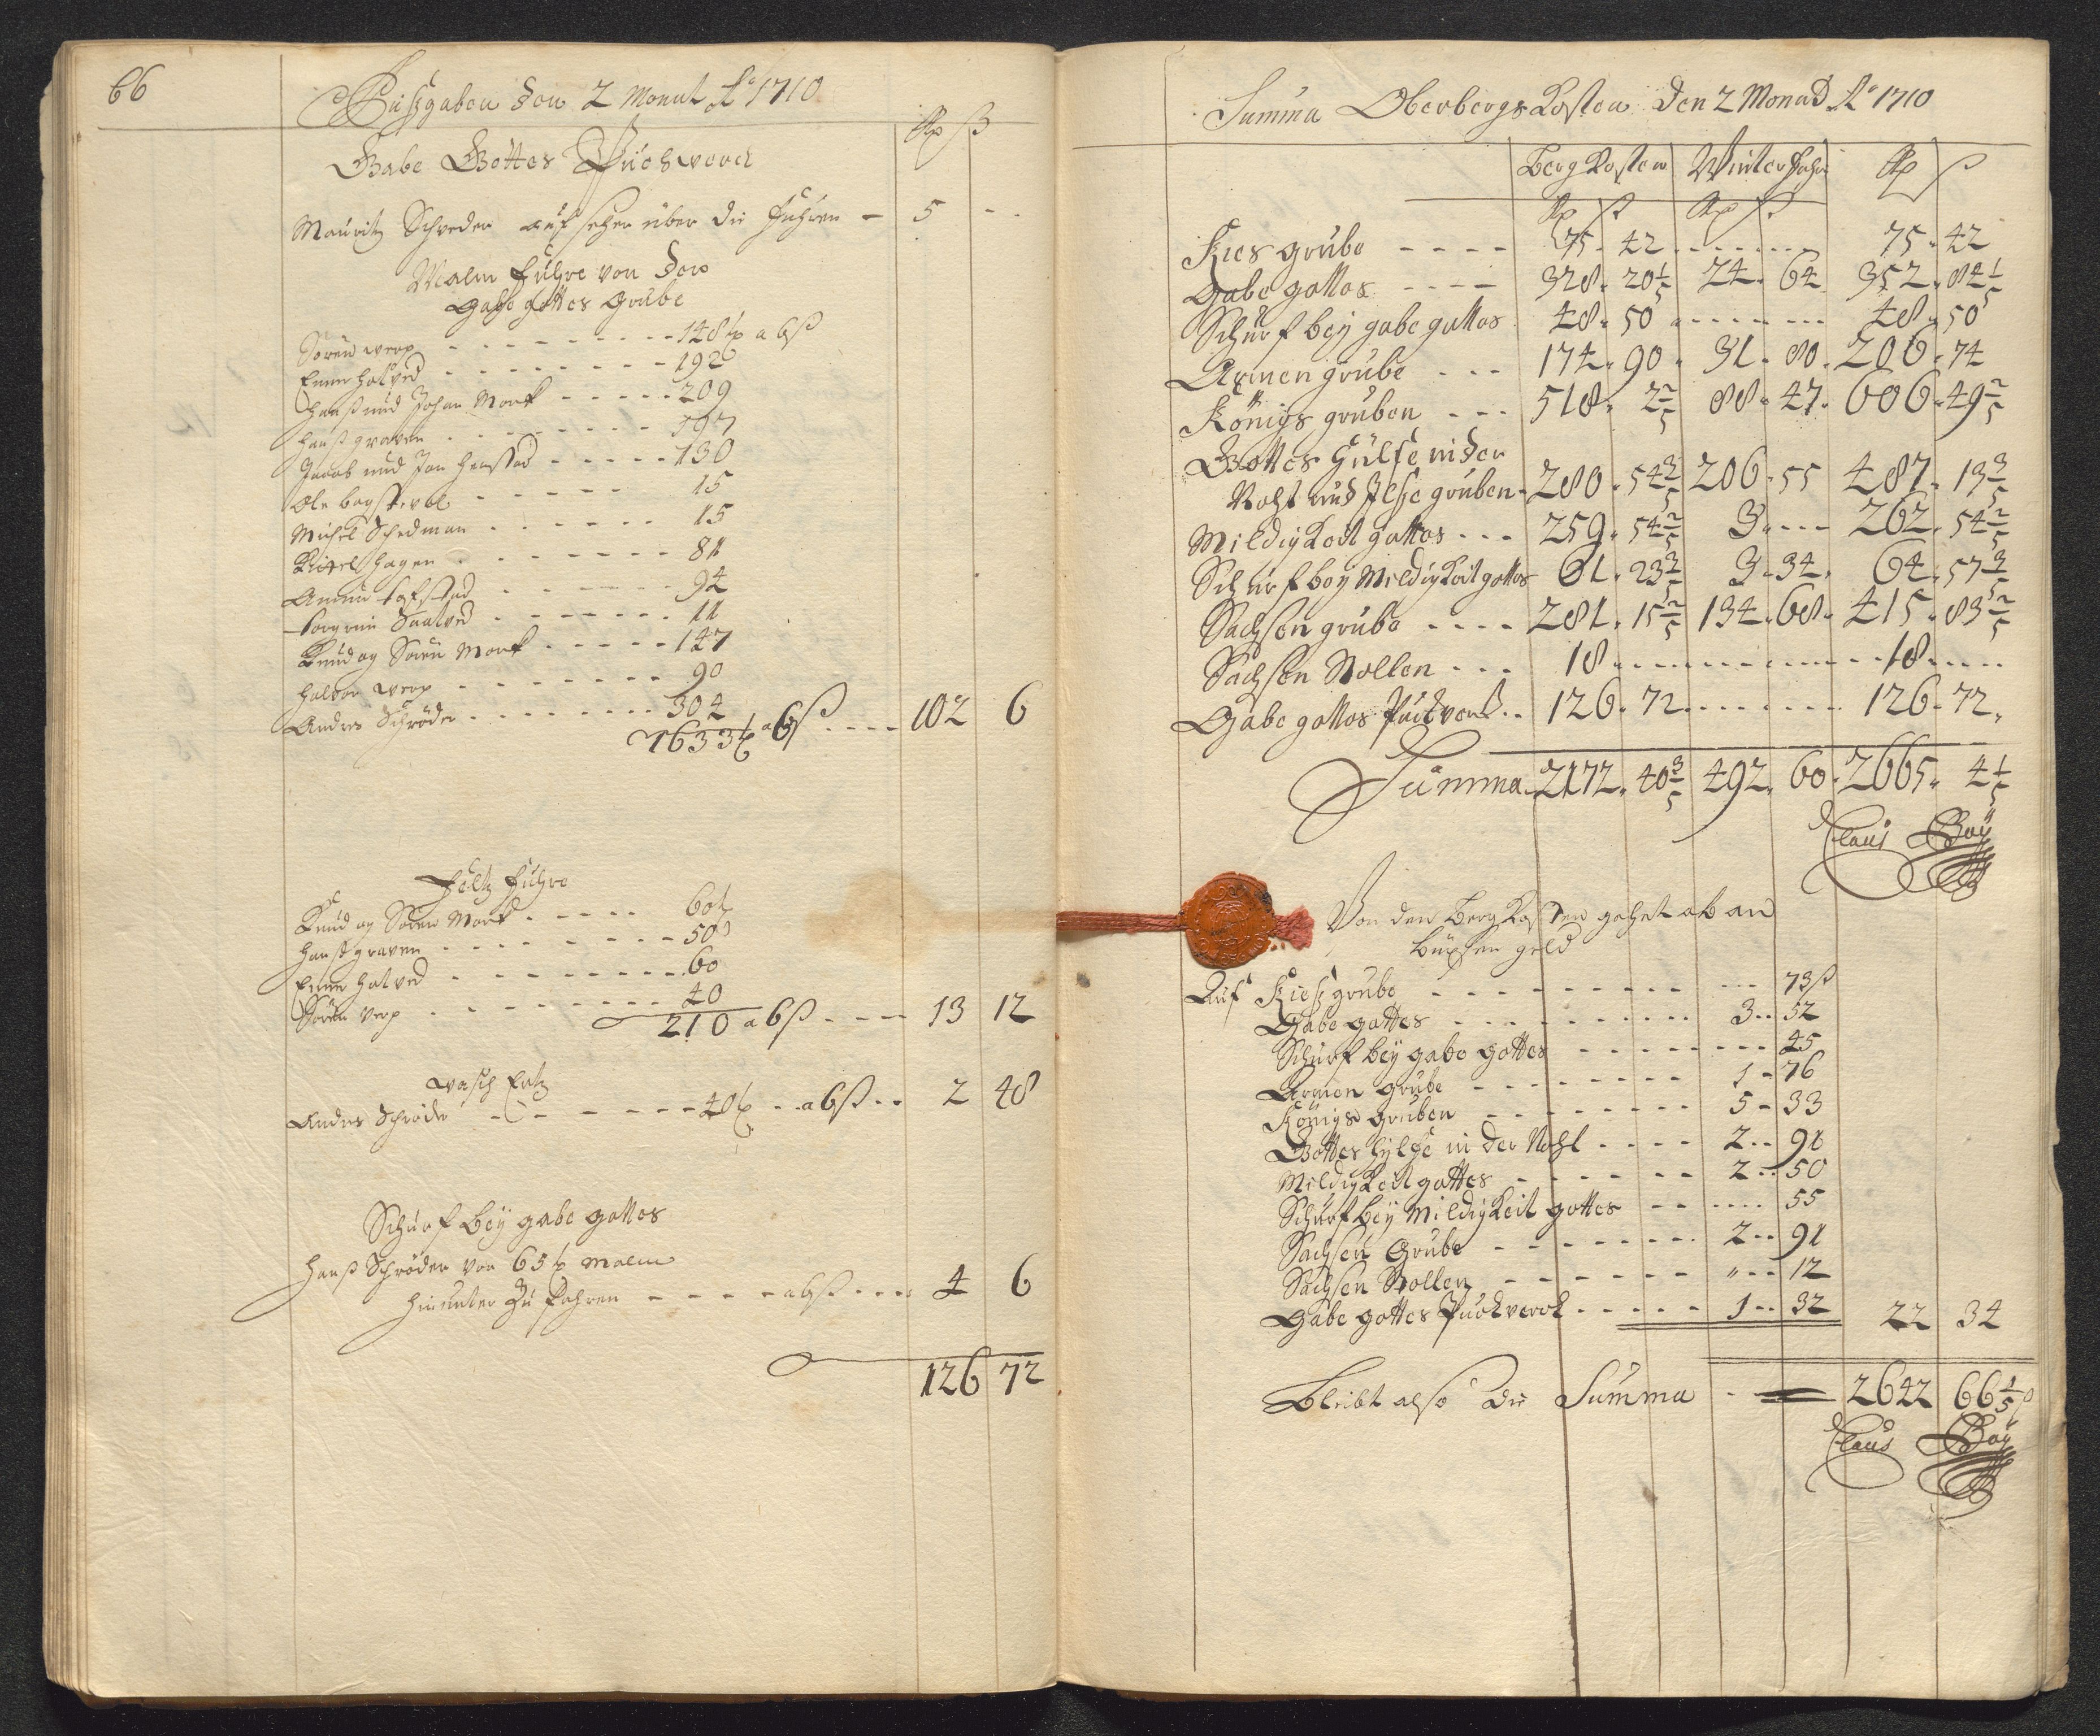 66
Außgaben den 2 Monat Ao 1710
Rp ß
Gabe Gottes Puchwerck
Mauritz Schreder aufseher über die Fuhren - 5 --
Malm Fuhre von der
Gabe gottes Grube
Sören verp - - - 148 tß a 6ß
Hotved - - - 192
Hanß und Johan Mork - - - 209
Hanß graven - - - 197
Jacob und Jon - - - 130
Ole - - - 15
Michel Schedman - - - 15
Kittel Hagen - - - 81
- - - 94
Saatved - - - 11
Knud og Sören Mork - - - 147
Halvor verp - - - 90
Andres Schröder - - - 304
1633 tß a 6ß - - - 102 6
Feltz Fuhre
Knud og Sören Mork - - - 60 t
Hanß graven - - - 50
Hotved - - - 60
Sören Verp - - - 40
210 a 6ß - - - 13 12
Wasch Ertz
Andres Schröder - - - 40 t - a 6ß - - 2 48
Schurf bey gabe gottes
Hanß Schröder von 65 t malm
hinunter zu fahren - - - a 6ß - - - 4 6
126 72
Summa Oberbergs Kosten den 2 Monad Ao 1710
Berg Kosten Winter Fuhr Rp ß
Rp ß Rp ß
Kies grube - - - - 75 - 42 - - - 75 - 42
Gabe gottes - - - - 328 - 20 1/5 24 - 64 352 - 84 1/5
Schurf bey gabe gottes 48 - 50 - - - 48 - 50
Armen grube - - - 174 - 90 - 31 - 80 - 206 - 74
Königs gruben - - - 518 - 2 2/5 88 - 47 - 606 - 49 2/5
Gottes Hülfe in der
Noht und Ilse gruben - 280 - 54 3/5 206 - 55 487 - 13 3/5
Mildigkeit gottes - - - 259 - 54 2/5 3 - - - 262 - 54 2/5
Schurf bey Mildigkeit gottes 61 - 23 3/5 3 - 34 - 64 - 57 3/5
Sachsen grube - - - - 281 - 15 2/5 134 - 68 - 415 - 83 2/5
Sachsen Stollen - - - 18 - - - 18 - - -
Gabe gottes Puckverck - - 126 - 72 - - - 126 - 72
Summa 2172 - 40 3/5 492 - 60 - 2665 - 4 1/5
Claus Boy
Von den Berg Kosten gehet ab an
Büchsen geld
Auf Kieß grube - - - 73ß
Gabe gottes - - - 3 - - 52
Schurf bey gabe gottes - - - 45
Armen grube - - - 1 - 76
Königs gruben - - - 5 - 33
Gottes hylfe in der Nohl - - - - 2 - - 91
Mildigkeit gottes - - - 2 - - 50
Schurf bey Mildigkeit gottes - - - 55
Sachsen Grube - - - 2 - - 91
Sachsen Stollen - - - " - - 12
Gabe gottes Puckverck - - - 1 - - 32 22 34
Bleibt also die Summa - - 2642 66 1/5 ß
Claus Boy